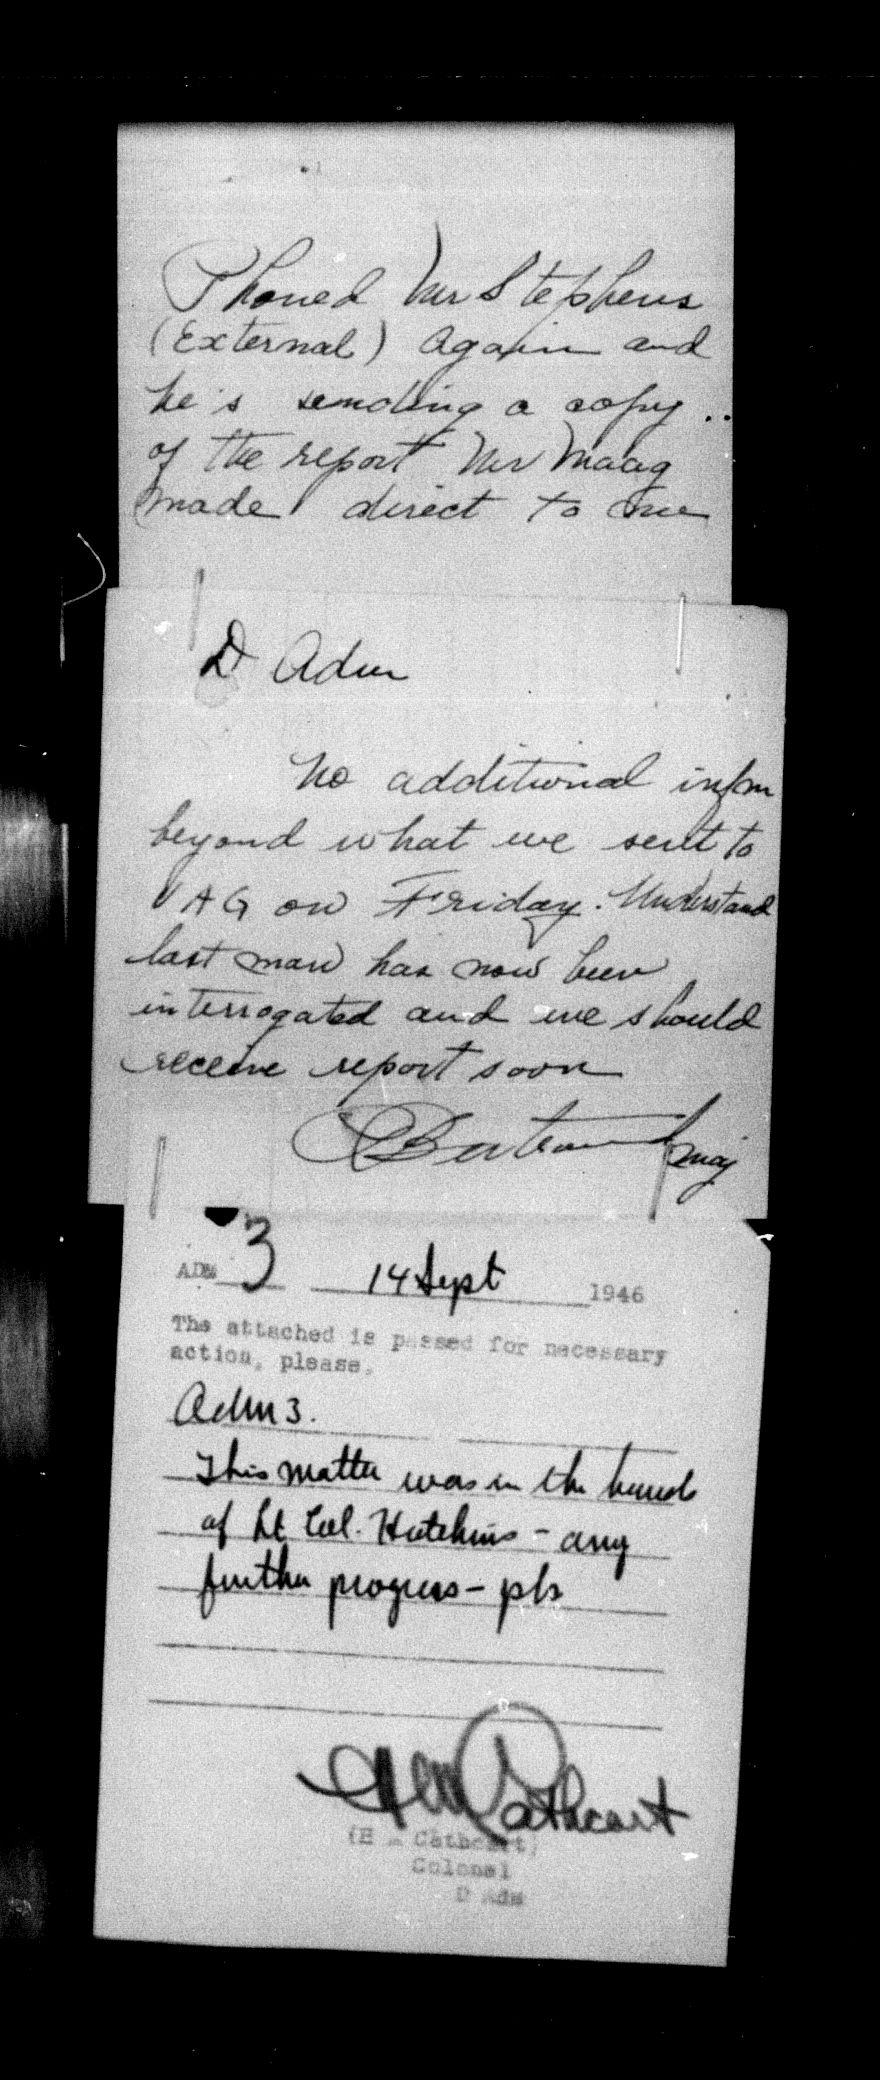 Phoned Mr Stephens
(External) again and
he's sending a copy..
of the report Mr Maag
made direct to me
D Adm
No additional infm
beyond what we sent to
VAG on Friday. Understand
last man has now been
interrogated and we should
receive report soon
Maj
ADM 3 14 Sept 1946
The attached is passed for necessary
action, please.
Adm 3.
This matter was in the hands
of Lt Col. Hutchins - any
further progress - pls
Cathcart
(H M Cathcart)
Colonel
D Adm